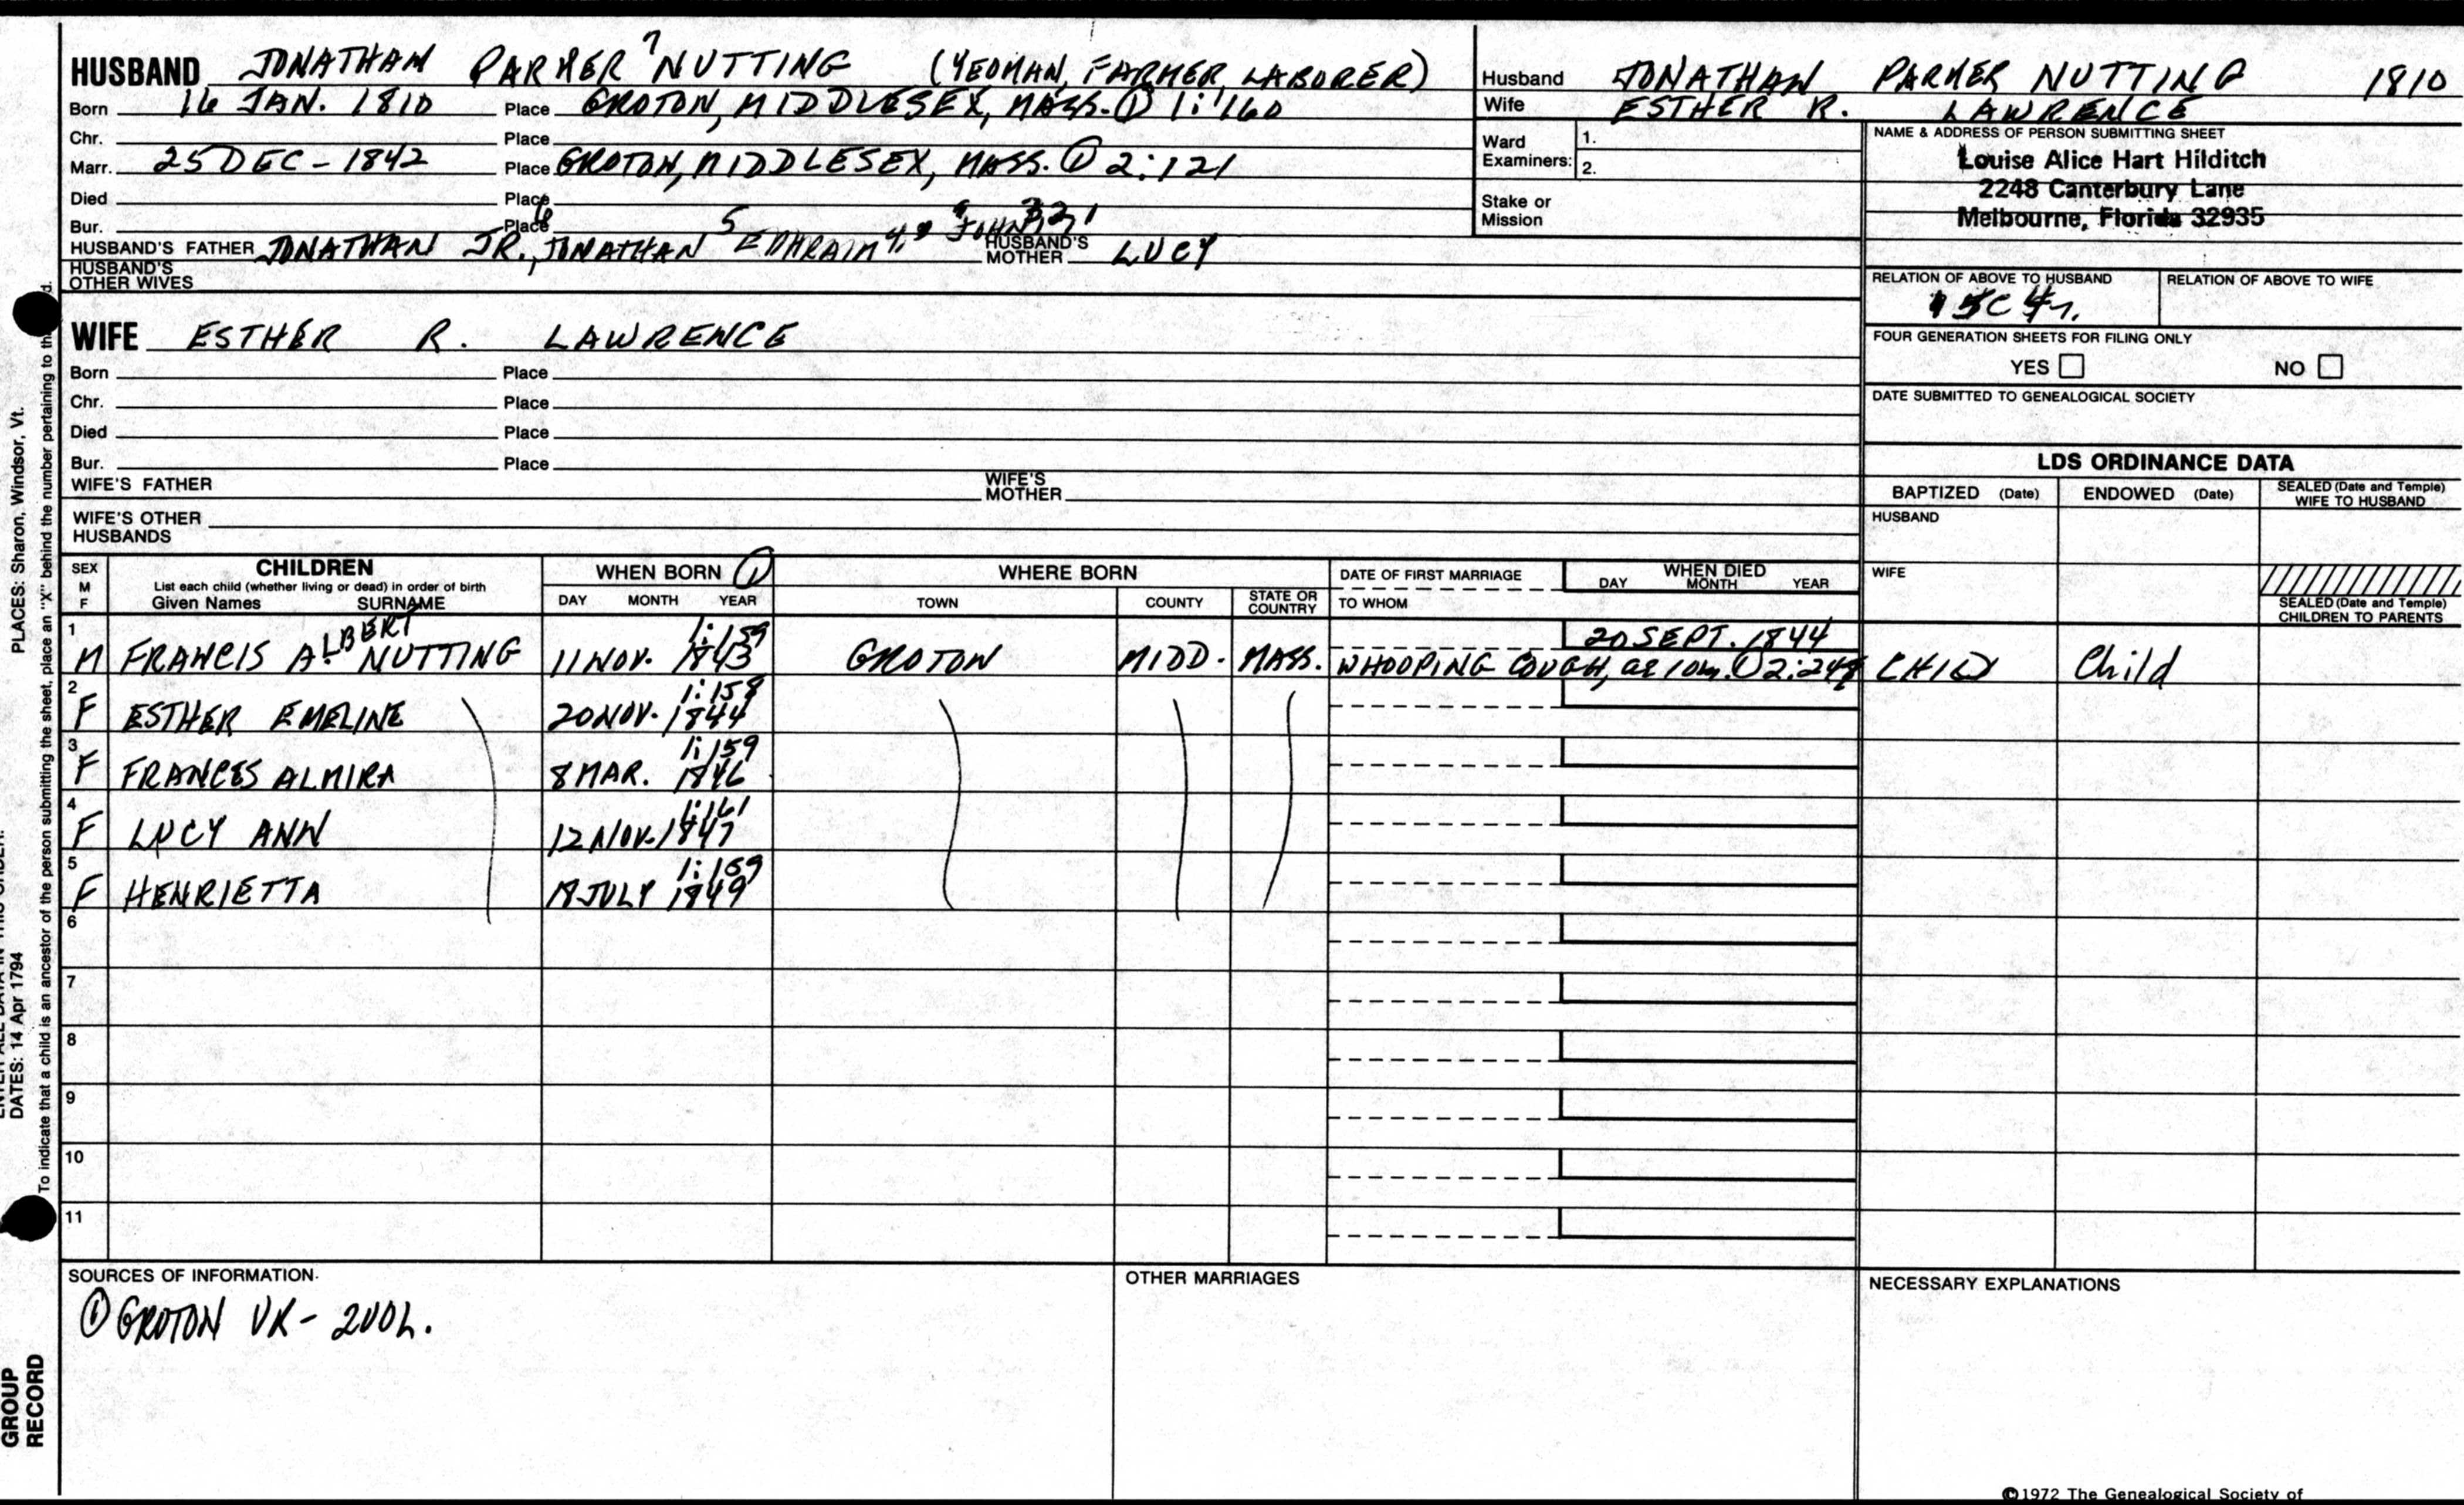 HUSBAND JONATHAN PARKER 7 NUTTING (YEOMAN, FARMER, LABORER)
Born 16 JAN. 1810 Place GROTON, MIDDLESEX, MASS. ① 1:160
Chr. Place
Marr. 25 DEC - 1842 Place GROTON, MIDDLESEX, MASS. ① 2:121
Died Place
Bur. Place
HUSBAND'S FATHER JONATHAN JR. 6, JONATHAN 5 EPHRAIM 4, JOHN 321 HUSBAND'S MOTHER LUCY
HUSBAND'S OTHER WIVES
Husband JONATHAN PARKER NUTTING 1810
Wife ESTHER R. LAWRENCE
Ward Examiners: 1.
2.
Stake or Mission
NAME & ADDRESS OF PERSON SUBMITTING SHEET
Louise Alice Hart Hilditch
2248 Canterbury Lane
Melbourne, Florida 32935
RELATION OF ABOVE TO HUSBAND RELATION OF ABOVE TO WIFE
FOUR GENERATION SHEETS FOR FILING ONLY
YES NO
DATE SUBMITTED TO GENEALOGICAL SOCIETY
WIFE ESTHER R. LAWRENCE
Born Place
Chr. Place
Died Place
Bur. Place
WIFE'S FATHER WIFE'S MOTHER
WIFE'S OTHER HUSBANDS
LDS ORDINANCE DATA
BAPTIZED (Date) ENDOWED (Date) SEALED (Date and Temple) WIFE TO HUSBAND
HUSBAND
WIFE
SEALED (Date and Temple) CHILDREN TO PARENTS
SEX M F
CHILDREN
List each child (whether living or dead) in order of birth
Given Names SURNAME
WHEN BORN ①
DAY MONTH YEAR
WHERE BORN
TOWN COUNTY STATE OR COUNTRY
DATE OF FIRST MARRIAGE
TO WHOM
WHEN DIED
DAY MONTH YEAR
1 M FRANCIS ALBERT NUTTING 11 NOV. 1843 1:159 GROTON MIDD. MASS. 20 SEPT. 1844
WHOOPING COUGH, ae 10m. ① 2:249 CHILD Child
2 F ESTHER EMELINE 20 NOV. 1844 1:158
3 F FRANCES ALMIRA 8 MAR. 1846 1:159
4 F LUCY ANN 12 NOV. 1847 1:161
5 F HENRIETTA 18 JULY 1849 1:159
6
7
8
9
10
11
SOURCES OF INFORMATION
① GROTON VR - 2 VOL.
OTHER MARRIAGES
NECESSARY EXPLANATIONS
©1972 The Genealogical Society of
PLACES: Sharon, Windsor, Vt.
DATES: 14 Apr 1794
To indicate that a child is an ancestor of the person submitting the sheet, place an "X" behind the number pertaining to
GROUP
RECORD